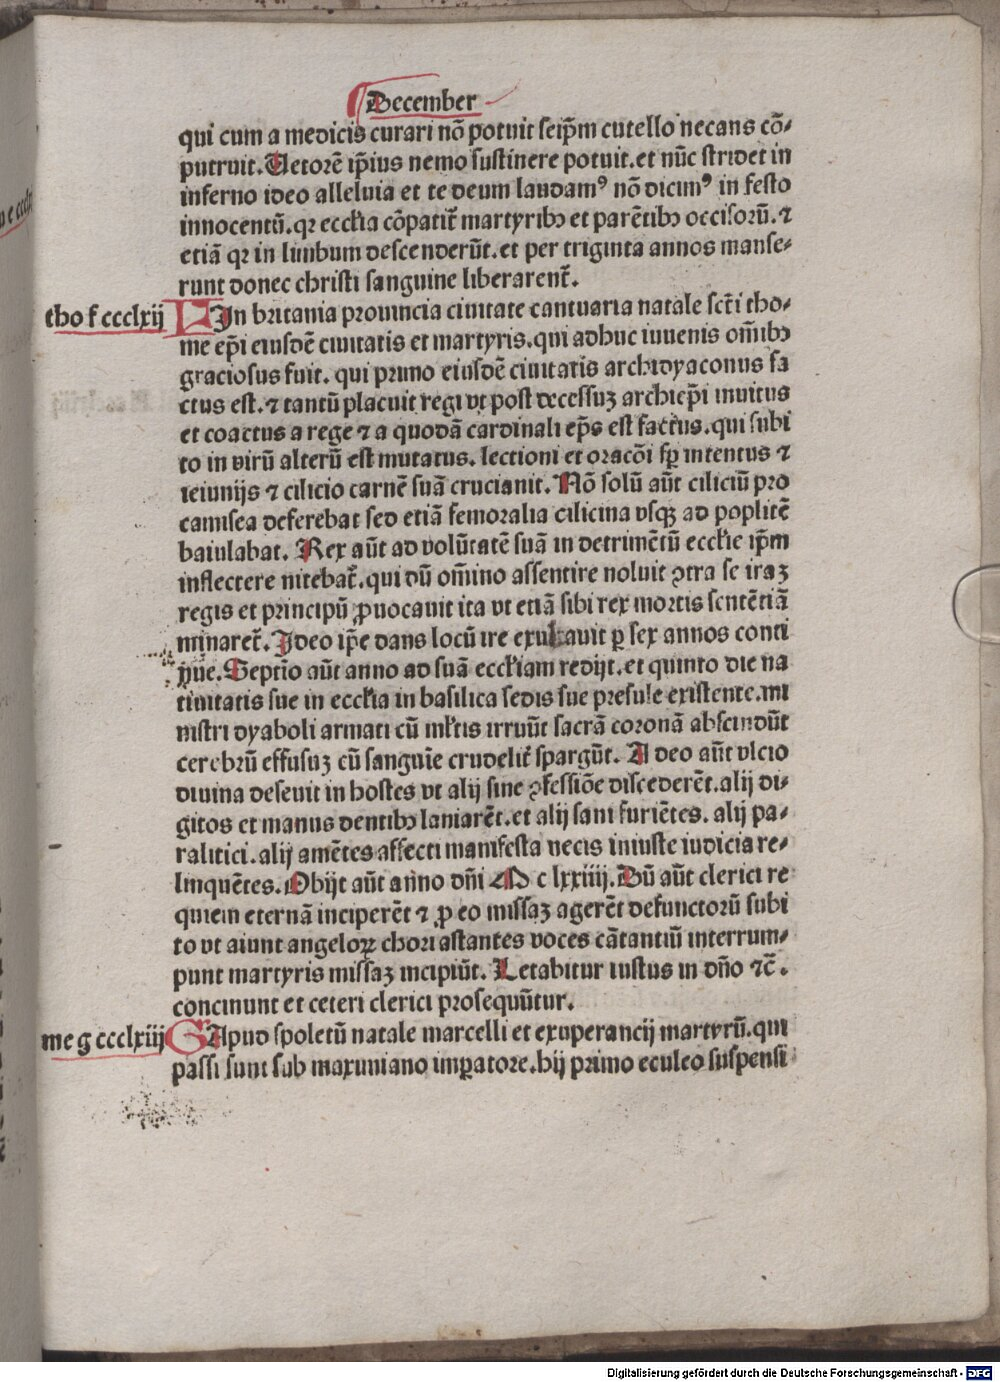 December
qui cum a medicis curari nō potuit seip̄m cutello necans cō⸗
putruit. Fetorē ip̄ius nemo sustinere potuit. et nūc stridet in
inferno ideo alleluia et te deum laudamꝰ nō dicimꝰ in festo
innocentū. qꝛ eccl̄ia cōpatit̄ martyribꝫ et parētibꝫ occisorū. ⁊
etiā qꝛ in limbum descenderūt. et per triginta annos manse⸗
runt donec christi sanguine liberarent̄.
tho f ccclxij
In britania prouincia ciuitate cantuaria natale sct̄i tho⸗
me ep̄i eiusdē ciuitatis et martyris. qui adhuc iuuenis om̄ibꝫ
graciosus fuit. qui primo eiusdē ciuitatis archidyaconus fa
ctus est. ⁊ tantū placuit regi vt post decessuꝫ archiep̄i inuitus
et coactus a rege ⁊ a quodā cardinali ep̄s est factus. qui subi
to in virū alterū est mutatus. lectioni et oracōi sꝑ intentus ⁊
ieiunijs ⁊ cilicio carnē suā cruciauit. Nō solū aūt ciliciū pro
camisea deferebat sed etiā femoralia cilicina vsqꝫ ad poplitē
baiulabat. Rex aūt ad volūtatē suā in detrimētū eccl̄ie ip̄m
inflectere nitebat̄. qui dū om̄ino assentire noluit ꝯtra se iraꝫ
regis et principū ꝓuocauit ita vt etiā sibi rex mortis sentētiā
minaret̄. Ideo ip̄e dans locū ire exulauit ꝑ sex annos conti
nue. Septīo aūt anno ad suā eccl̄iam redijt. et quinto die na
tiuitatis sue in eccl̄ia in basilica sedis sue presule existente. mi
nistri dyaboli armati cū ml̄tis irruūt sacrā coronā abscindūt
cerebrū effusuꝫ cū sanguīe crudelit̄ spargūt. Adeo aūt vlcio
diuina deseuit in hostes vt alij sine ꝯfessiōe discederēt. alij di⸗
gitos et manus dentibꝫ laniarēt. et alij fani furiētes. alij pa⸗
ralitici. alij amētes affecti manifesta necis iniuste iudicia re⸗
linquētes. Obijt aūt anno dn̄i M c lxxiiij. Dū aūt clerici re
quiem eternā inciperēt ⁊ ꝓ eo missaꝫ agerēt defunctorū subi
to vt aiunt angeloꝝ chori astantes voces cātantiū interrum⸗
punt martyris missaꝫ incipiūt. Letabitur iustus in dn̄o ⁊c̄.
concinunt et ceteri clerici prosequūtur.
me g ccclxiij
Apud spoletū natale marcelli et exuperancij martyrū. qui
passi sunt sub maximiano imꝑatore. hij primo eculeo suspensi
Digitalisierung gefördert durch die Deutsche Forschungsgemeinschaft - DFG